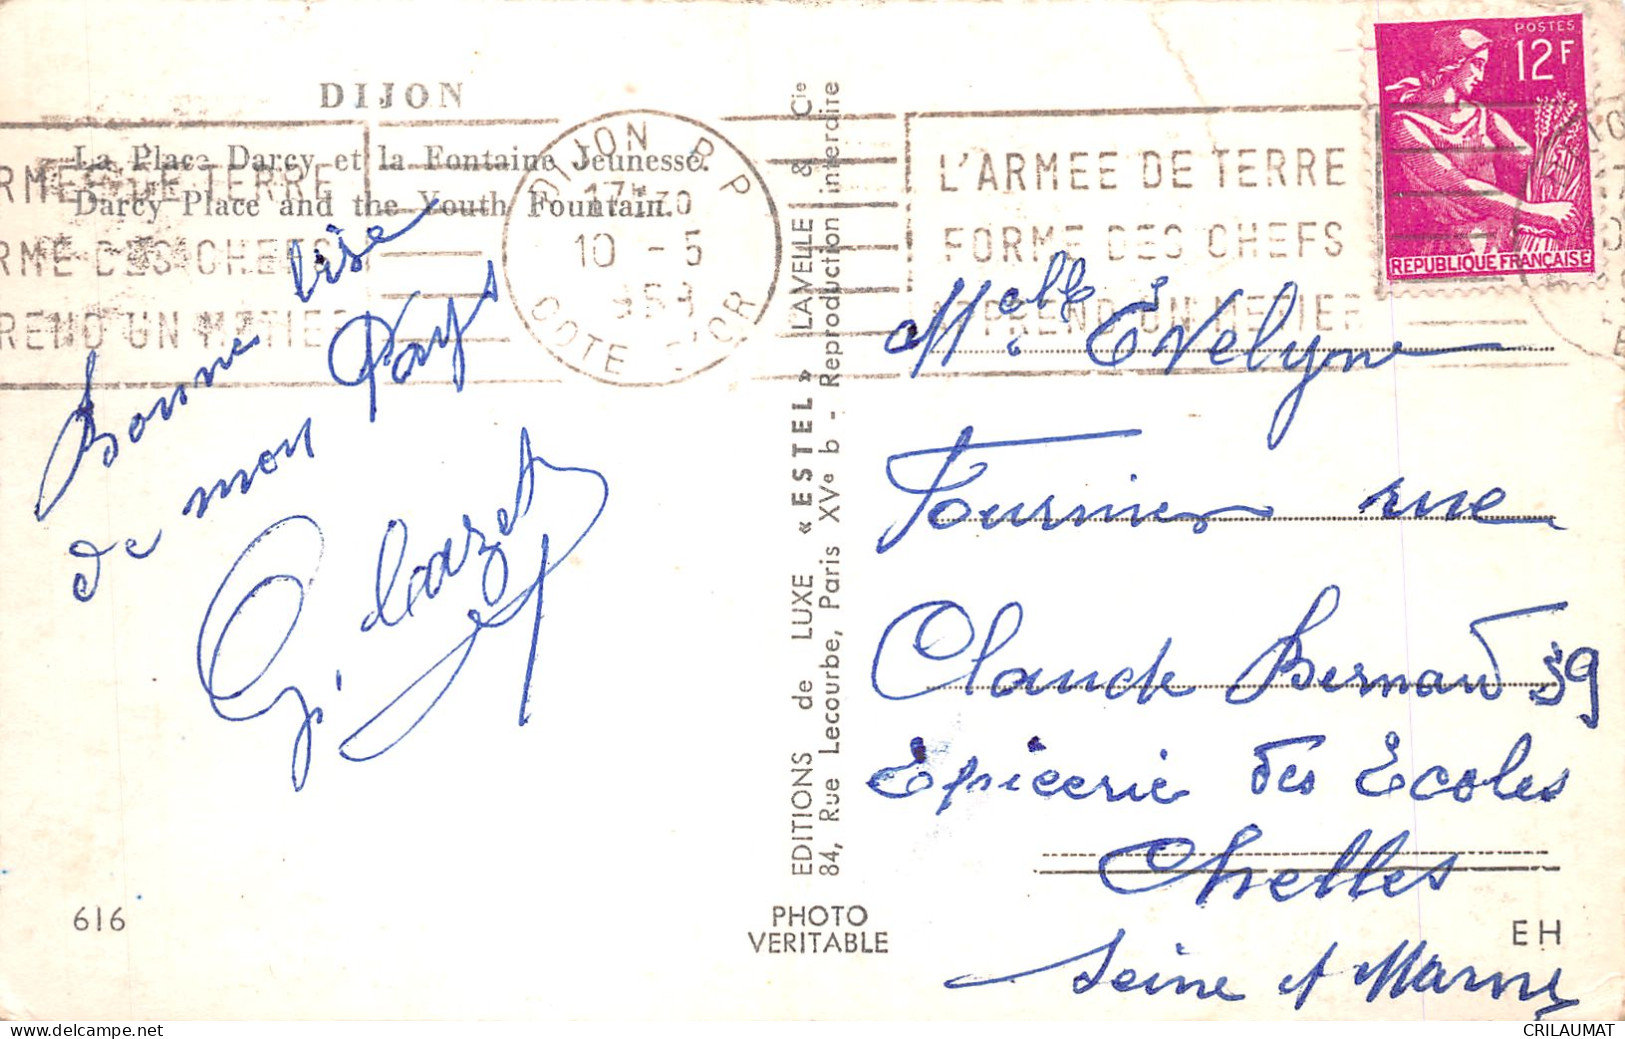 DIJON
La Place Darcy et la Fontaine Jeunesse.
Darcy Place and the Youth Fountain.
DIJON P P
17H30
10 - 5
COTE D'OR
L'ARMEE DE TERRE
FORME DES CHEFS
APPREND UN METIER
RME DE TERRE
RME DES CHEFS
REND UN METIER
POSTES
12F
REPUBLIQUE FRANÇAISE
Bonne bise
de mon Pays
EDITIONS de LUXE « ESTEL » LAVELLE & Cie
84, Rue Lecourbe, Paris XVe b - Reproduction interdite
Melle Evelyne
Fournier rue
Claude Bernard 59
Epicerie des Ecoles
Chelles
Seine et Marne
616
PHOTO
VERITABLE
EH
CRILAUMAT